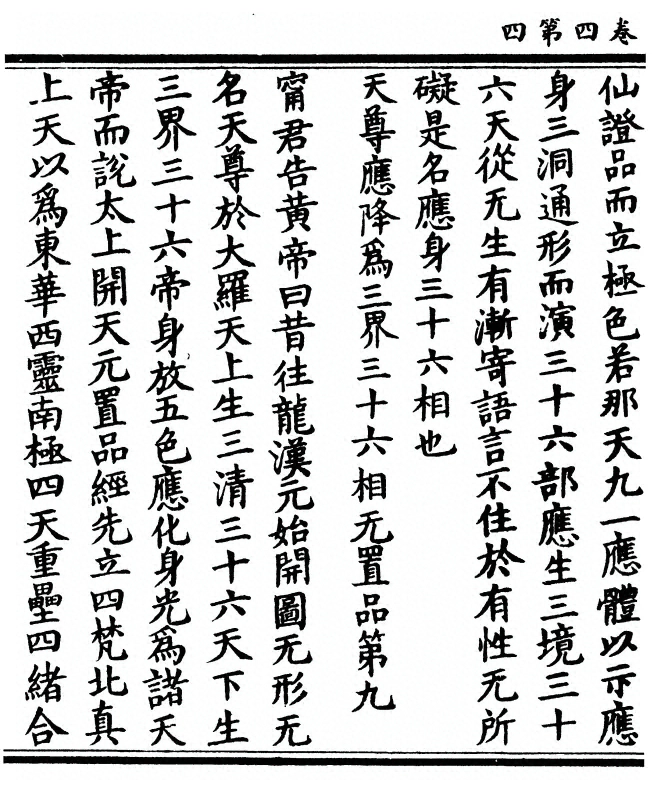 卷四第四
仙證品而立極色若那天九一應體以示應
身三洞通形而演三十六部應生三境三十
六天從无生有漸寄語言不住於有性无所
礙是名應身三十六相也
天尊應降爲三界三十六相无置品第九
甯君告黄帝曰昔往龍漢元始開圖无形无
名天尊於大羅天上生三清三十六天下生
三界三十六帝身放五色應化身光爲諸天
帝而說太上開天元置品經先立四梵北真
上天以爲東華西靈南極四天重壘四緒合